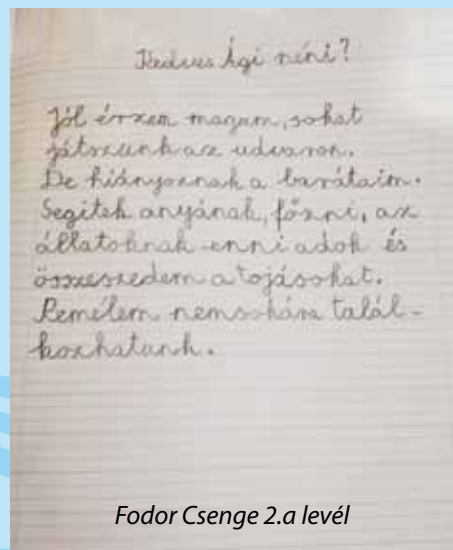 Kedves Ági néni?
Jól érzem magam, sokat
játszunk az udvaron.
De hiányoznak a barátaim.
Segitek anyának, főzni, az
állatoknak enni adok és
összeszedem a tojásokat.
Remélem nemsokára talál-
kozhatunk.
Fodor Csenge 2.a levél